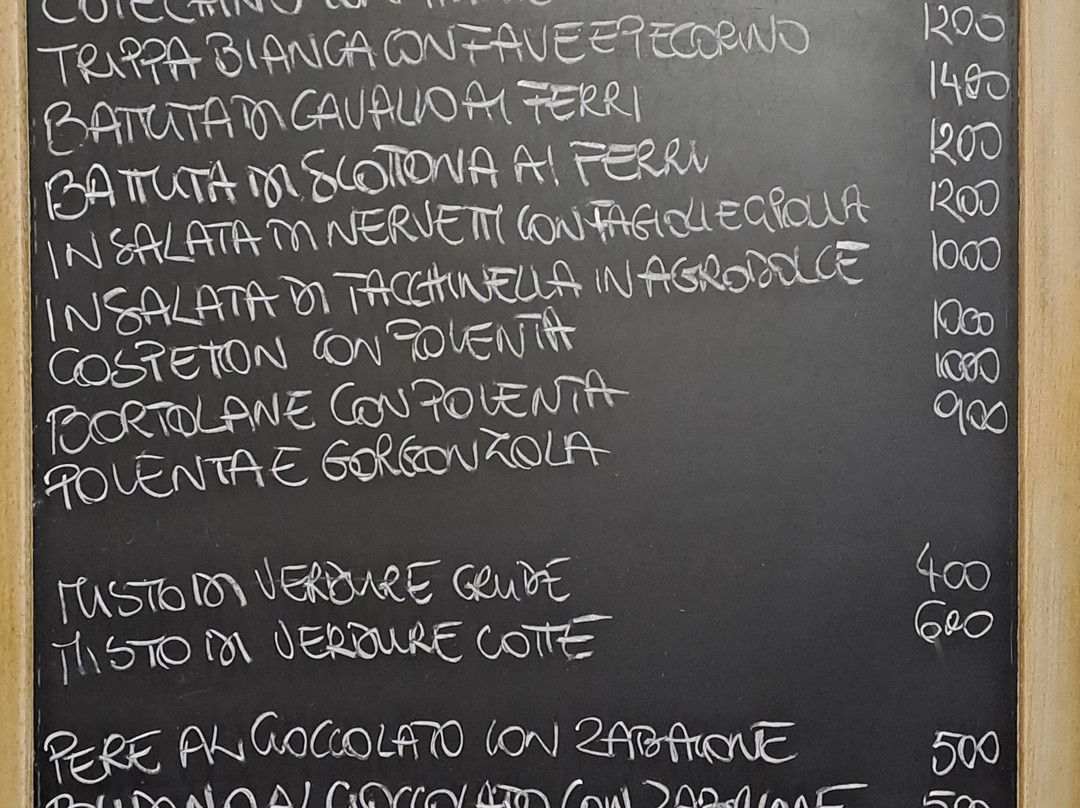 COTECHINO CON
TRIPPA BIANCA CON FAVE E PECORINO 1200
BATTUTA DI CAVALLO AI FERRI 1400
BATTUTA DI SCOTTONA AI FERRI 1200
INSALATA DI NERVETTI CON FAGIOLI E CIPOLLA 1200
INSALATA DI TACCHINELLA IN AGRODOLCE 1000
COSPETON CON POLENTA 1000
BORTOLANE CON POLENTA 1000
POLENTA E GORGONZOLA 900
MISTO DI VERDURE CRUDE 400
MISTO DI VERDURE COTTE 600
PERE AL CIOCCOLATO CON ZABAIONE 500
AL CIOCCOLATO CON ZABAIONE 500